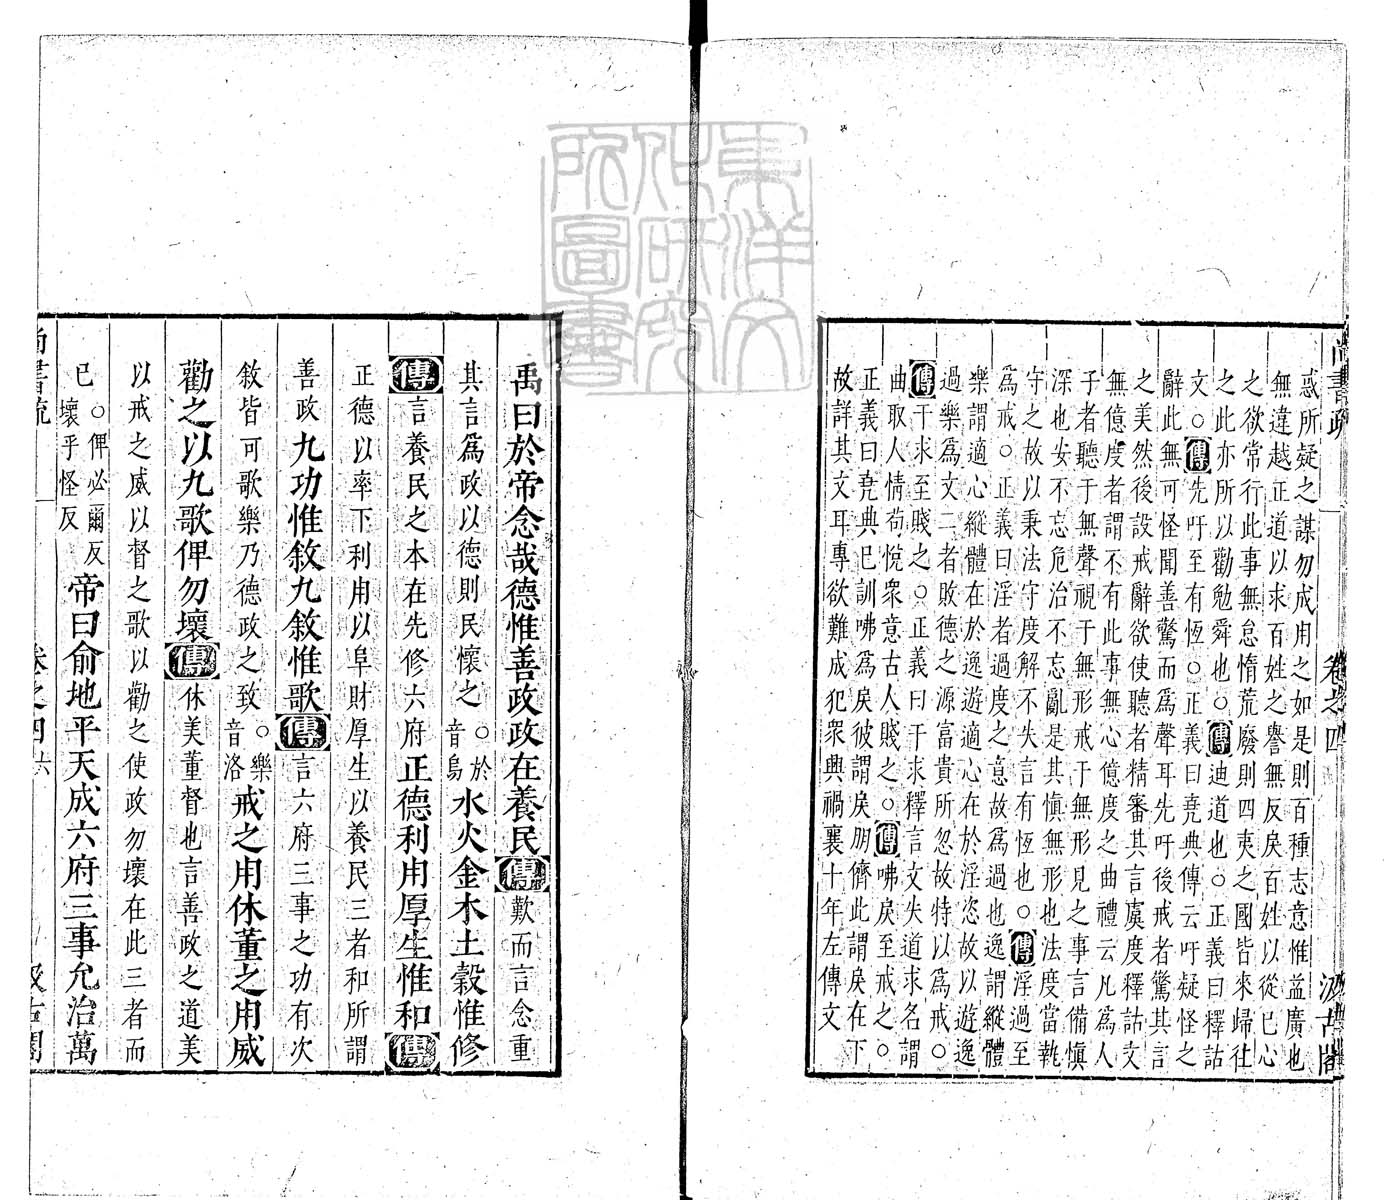 尚書疏 卷之四 汲古閣
惑所疑之謀勿成用之如是則百種志意惟益廣也
無違越正道以求百姓之譽無反戾百姓以從己心
之欲常行此事無怠惰荒廢則四夷之國皆來歸往
之此亦所以勸勉舜也○傳迪道也○正義曰釋詁
文○傳先吁至有恆○正義曰堯典傳云吁疑怪之
辭此無可怪聞善驚而爲聲耳先吁後戒者驚其言
之美然後設戒辭欲使聽者精審其言虞度釋詁文
無億度者謂不有此事無心億度之曲禮云凡爲人
子者聽于無聲視于無形戒于無形見之事言備慎
深也安不忘危治不忘亂是其慎無形也法度當執
守之故以秉法守度解不失言有恆也○傳淫過至
爲戒○正義曰淫者過度之意故爲過也逸謂縱體
樂謂適心縱體在於逸遊適心在於淫恣故以遊逸
過樂爲文二者敗德之源富貴所忽故特以爲戒○
傳干求至賤之○正義曰干求釋言文失道求名謂
曲取人情苟悅衆意古人賤之○傳咈戾至戒之○
正義曰堯典已訓咈爲戾彼謂戾朋儕此謂戾在下
故詳其文耳專欲難成犯衆興禍襄十年左傳文
禹曰於帝念哉德惟善政政在養民傳歎而言念重
其言爲政以德則民懷之○於音烏水火金木土穀惟修
傳言養民之本在先修六府正德利用厚生惟和傳
正德以率下利用以阜財厚生以養民三者和所謂
善政九功惟敘九敘惟歌傳言六府三事之功有次
敘皆可歌樂乃德政之致○樂音洛戒之用休董之用威
勸之以九歌俾勿壞傳休美董督也言善政之道美
以戒之威以督之歌以勸之使政勿壞在此三者而
已○俾必爾反壞乎怪反帝曰俞地平天成六府三事允治萬
尚書疏 卷之四 六 汲古閣
東洋文化研究所圖書